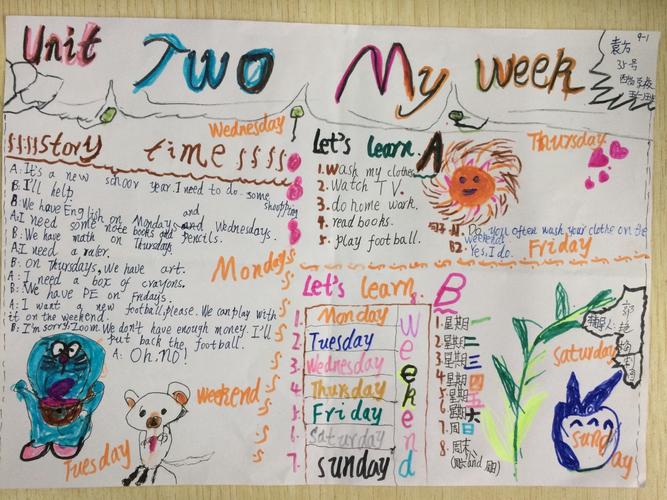 Unit Two My Week
9-1
35号
Wednesday
Story time
A: It's a new school year. I need to do some
shopping
B: I'll help
B: We have English on Mondays and Wednesdays.
and
A: I need some note books and pencils.
B: We have math on Thursdays
A: I need a ruler.
B: On Thursdays, we have art.
A: I need a box of crayons.
B: We have PE on Fridays.
A: I want a new football, please. We can play with
it on the weekend.
B: I'm sorry, Zoom. We don't have enough money. I'll
put back the football.
A: Oh, no!
Mondays
weekend
Tuesday
Let's learn. A
1. Wash my clothes
2. Watch TV.
3. do home work.
4. read books.
5. play football.
Thursday
Do you often wash your clothe on the
weekend
Yes, I do.
Friday
Let's learn. B
1. Monday
2. Tuesday
3. Wednesday
4. Thursday
5. Friday
6. Saturday
7. Sunday
Weekend
1. 星期一
2. 星期二
3. 星期三
4. 星期四
5. 星期五
6. 星期六
7. 周日
8. 周末
Saturday
Sunday